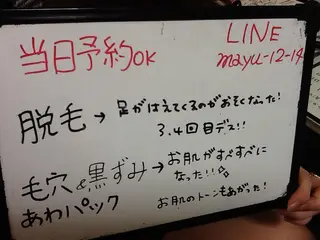 当日予約OK
LINE
mayu-12-14
脱毛→足がはえてくるのがおそくなった!
3.4回目デス!!
毛穴&黒ずみ→お肌がすべすべに
なった!!
あわパック
お肌のトーンもあがった!